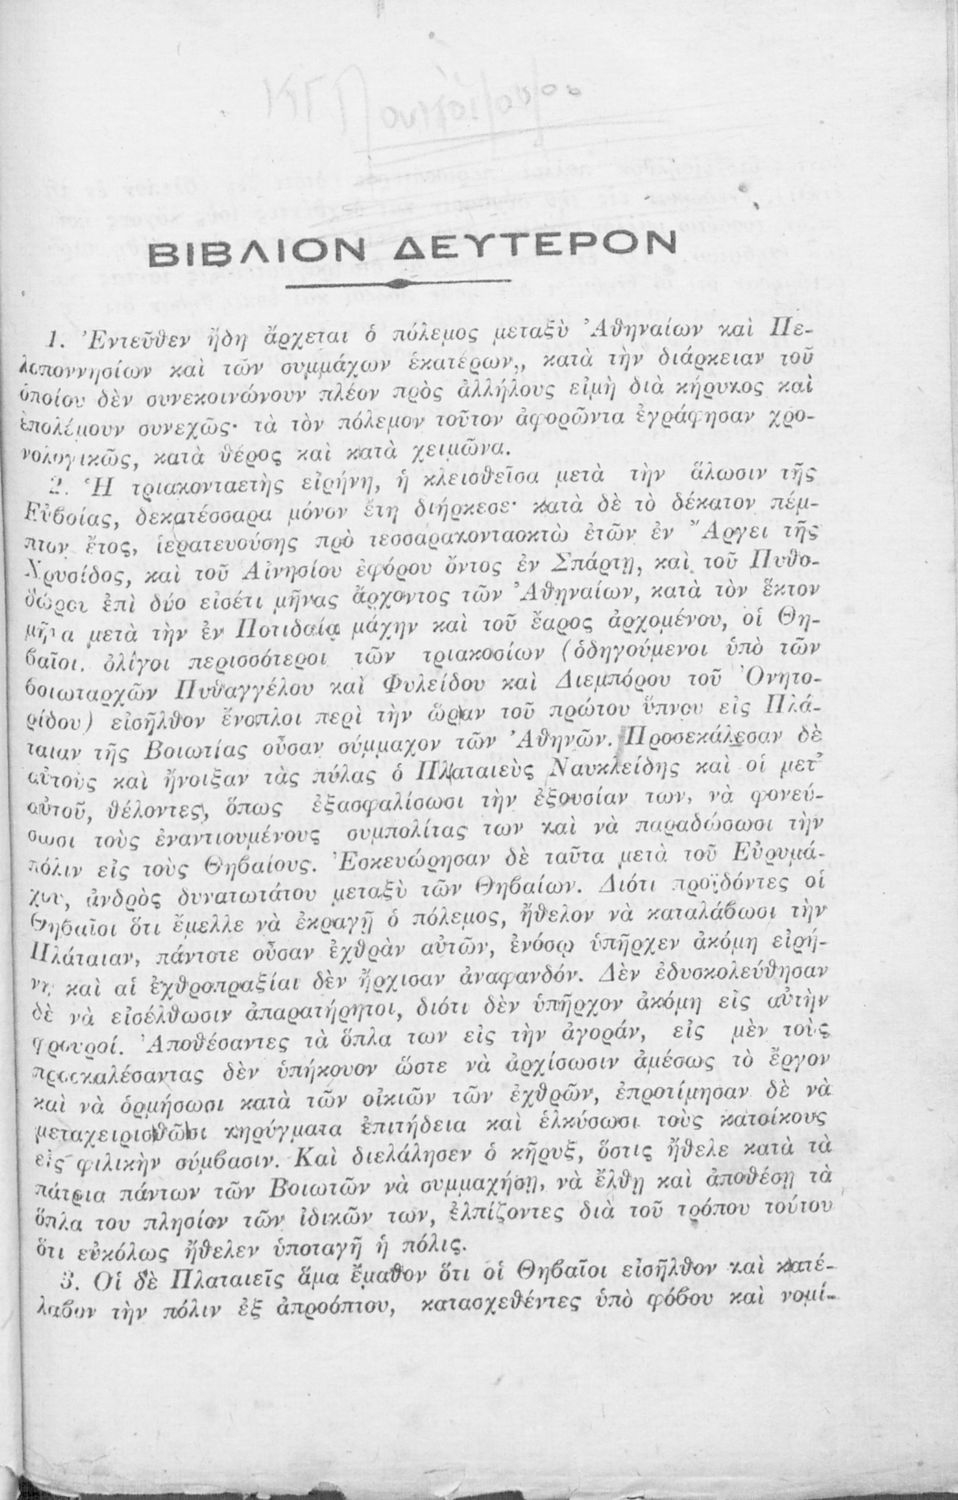 ΒΙΒΛΙΟΝ ΔΕΥΤΕΡΟΝ
1. Ἐντεῦθεν ἤδη ἄρχεται ὁ πόλεμος μεταξὺ Ἀθηναίων καὶ Πε-
λοποννησίων καὶ τῶν συμμάχων ἑκατέρων,, κατὰ τὴν διάρκειαν τοῦ
ὁποίου δὲν συνεκοινώνουν πλέον πρὸς ἀλλήλους εἰμὴ διὰ κήρυκος καὶ
ἐπολέμουν συνεχῶς· τὰ τὸν πόλεμον τοῦτον ἀφορῶντα ἐγράφησαν χρο-
νολογικῶς, κατὰ θέρος καὶ κατὰ χειμῶνα.
2. Ἡ τριακονταετὴς εἰρήνη, ἡ κλεισθεῖσα μετὰ τὴν ἅλωσιν τῆς
Εὐβοίας, δεκατέσσαρα μόνον ἔτη διήρκεσε· κατὰ δὲ τὸ δέκατον πέμ-
πτον ἔτος, ἱερατευούσης πρὸ τεσσαρακονταοκτὼ ἐτῶν ἐν Ἄργει τῆς
Χρυσίδος, καὶ τοῦ Αἰνησίου ἐφόρου ὄντος ἐν Σπάρτῃ, καὶ τοῦ Πυθο-
δώρου ἐπὶ δύο εἰσέτι μῆνας ἄρχοντος τῶν Ἀθηναίων, κατὰ τὸν ἕκτον
μῆνα μετὰ τὴν ἐν Ποτιδαίᾳ μάχην καὶ τοῦ ἔαρος ἀρχομένου, οἱ Θη-
βαῖοι, ὀλίγοι περισσότεροι τῶν τριακοσίων (ὁδηγούμενοι ὑπὸ τῶν
βοιωταρχῶν Πυθαγγέλου καὶ Φυλείδου καὶ Διεμπόρου τοῦ Ὀνητο-
ρίδου) εἰσῆλθον ἔνοπλοι περὶ τὴν ὥραν τοῦ πρώτου ὕπνου εἰς Πλά-
ταιαν τῆς Βοιωτίας οὖσαν σύμμαχον τῶν Ἀθηνῶν. Προσεκάλεσαν δὲ
αὐτοὺς καὶ ἤνοιξαν τὰς πύλας ὁ Πλαταιεὺς Ναυκλείδης καὶ οἱ μετ'
αὐτοῦ, θέλοντες, ὅπως ἐξασφαλίσωσι τὴν ἐξουσίαν των, νὰ φονεύ-
σωσι τοὺς ἐναντιουμένους συμπολίτας των καὶ νὰ παραδώσωσι τὴν
πόλιν εἰς τοὺς Θηβαίους. Ἐσκευώρησαν δὲ ταῦτα μετὰ τοῦ Εὐρυμά-
χου, ἀνδρὸς δυνατωτάτου μεταξὺ τῶν Θηβαίων. Διότι προϊδόντες οἱ
Θηβαῖοι ὅτι ἔμελλε νὰ ἐκραγῇ ὁ πόλεμος, ἤθελον νὰ καταλάβωσι τὴν
Πλάταιαν, πάντοτε οὖσαν ἐχθρὰν αὐτῶν, ἐνόσῳ ὑπῆρχεν ἀκόμη εἰρή-
νη καὶ αἱ ἐχθροπραξίαι δὲν ἤρχισαν ἀναφανδόν. Δὲν ἐδυσκολεύθησαν
δὲ νὰ εἰσέλθωσιν ἀπαρατήρητοι, διότι δὲν ὑπῆρχον ἀκόμη εἰς αὐτὴν
φρουροί. Ἀποθέσαντες τὰ ὅπλα των εἰς τὴν ἀγοράν, εἰς μὲν τοὺς
προσκαλέσαντας δὲν ὑπήκουον ὥστε νὰ ἀρχίσωσιν ἀμέσως τὸ ἔργον
καὶ νὰ ὁρμήσωσι κατὰ τῶν οἰκιῶν τῶν ἐχθρῶν, ἐπροτίμησαν δὲ νὰ
μεταχειρισθῶσι κηρύγματα ἐπιτήδεια καὶ ἑλκύσωσι τοὺς κατοίκους
εἰς φιλικὴν σύμβασιν. Καὶ διελάλησεν ὁ κῆρυξ, ὅστις ἤθελε κατὰ τὰ
πάτρια πάντων τῶν Βοιωτῶν νὰ συμμαχήσῃ, νὰ ἔλθῃ καὶ ἀποθέσῃ τὰ
ὅπλα του πλησίον τῶν ἰδικῶν των, ἐλπίζοντες διὰ τοῦ τρόπου τούτου
ὅτι εὐκόλως ἤθελεν ὑποταγῆ ἡ πόλις.
3. Οἱ δὲ Πλαταιεῖς ἅμα ἔμαθον ὅτι οἱ Θηβαῖοι εἰσῆλθον καὶ κατέ-
λαβον τὴν πόλιν ἐξ ἀπροόπτου, κατασχεθέντες ὑπὸ φόβου καὶ νομί-